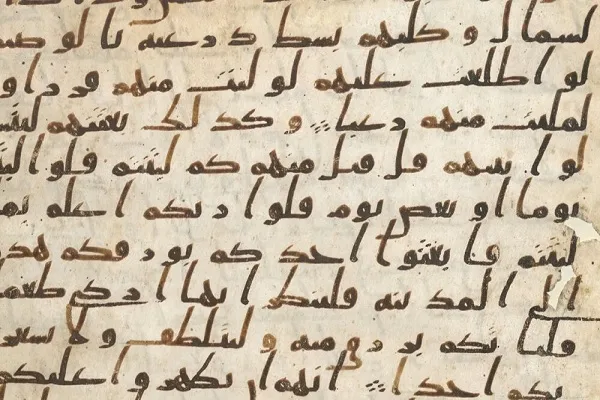 لشمال و كلبهم بسط ذرعيه بالوصيد
لو اطلعت عليهم لوليت منهم فررا و
لمليت منهم رعبا و كذلك بعثنهم ليتسا
لوا بينهم قل قيل منهم كم لبثتم قلوا لبثنا
يوما او بعض يوم قلوا ربكم اعلم بما
لبثتم فابعثوا احدكم بورقكم هذه
الى المدينه فلينظر ايها ازكى طعما
فلياتكم برزق منه و ليتلطف و لا يشعرن
بكم احدا انهم ان يظهروا عليكم